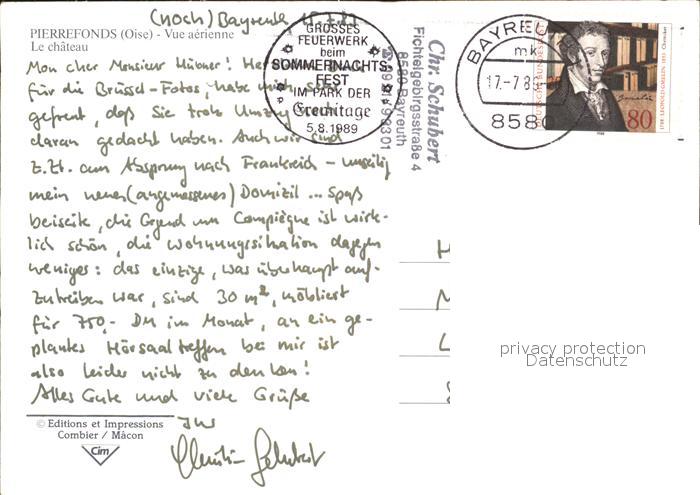 PIERREFONDS (Oise) - Vue aérienne
Le château
(noch) Bayreuth
Mon cher Monsieur Hübner!
für die Brüssel-Fotos, habe mich
gefreut, daß Sie trotz Umzug
daran gedacht haben. Auch wir sind
z.Zt. am Absprung nach Frankreich -
mein neues (angemessenes) Domizil ... Spaß
beiseite, die Gegend um Compiègne ist wirk-
lich schön, die Wohnungssituation dagegen
weniger: das einzige, was überhaupt auf-
zutreiben war, sind 30 m², möbliert
für 750,- DM im Monat, an ein ge-
plantes Hörsaaltreffen bei mir ist
also leider nicht zu denken!
Alles Gute und viele Grüße
Ihr
Christian Schubert
© Editions et Impressions
Combier / Mâcon
Cim
GROSSES
FEUERWERK
beim
SOMMERNACHTS-
FEST
IM PARK DER
Eremitage
5.8.1989
Chr. Schubert
Fichtelgebirgsstraße 4
8580 Bayreuth
BAYREU
mk
17.-7.89
8580
DEUTSCHE BUNDESPOST
80
1788 LEOPOLD GMELIN 1853 Chemiker
1988
privacy protection
Datenschutz